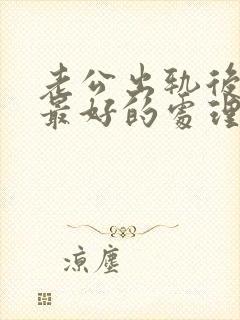 老公出轨後
最好的處理
凉塵